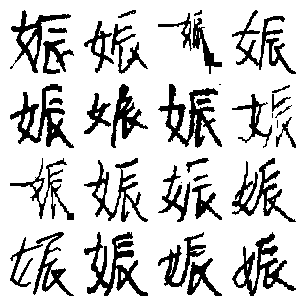 娠娠娠娠
娠娠娠娠
娠娠娠娠
娠娠娠娠